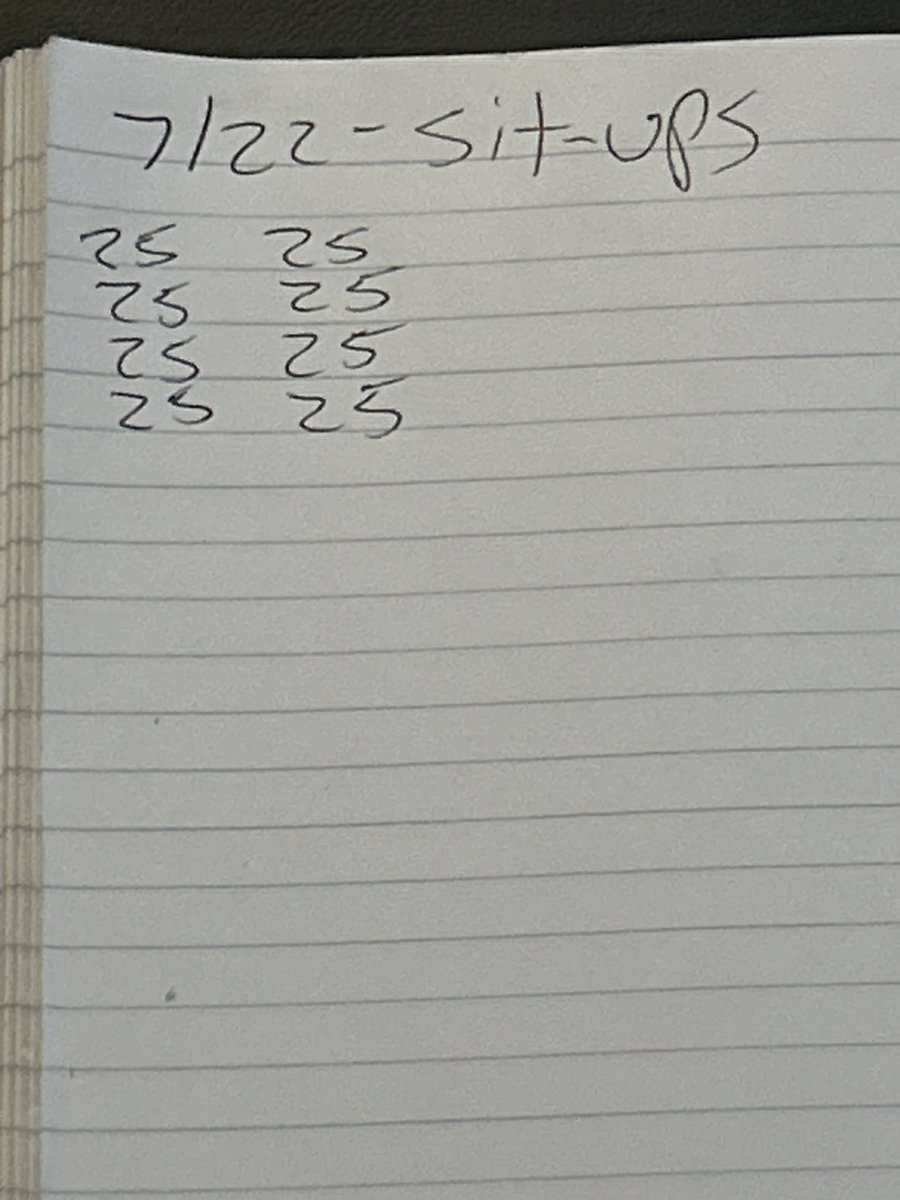 7/22 - sit-ups
25 25
25 25
25 25
25 25